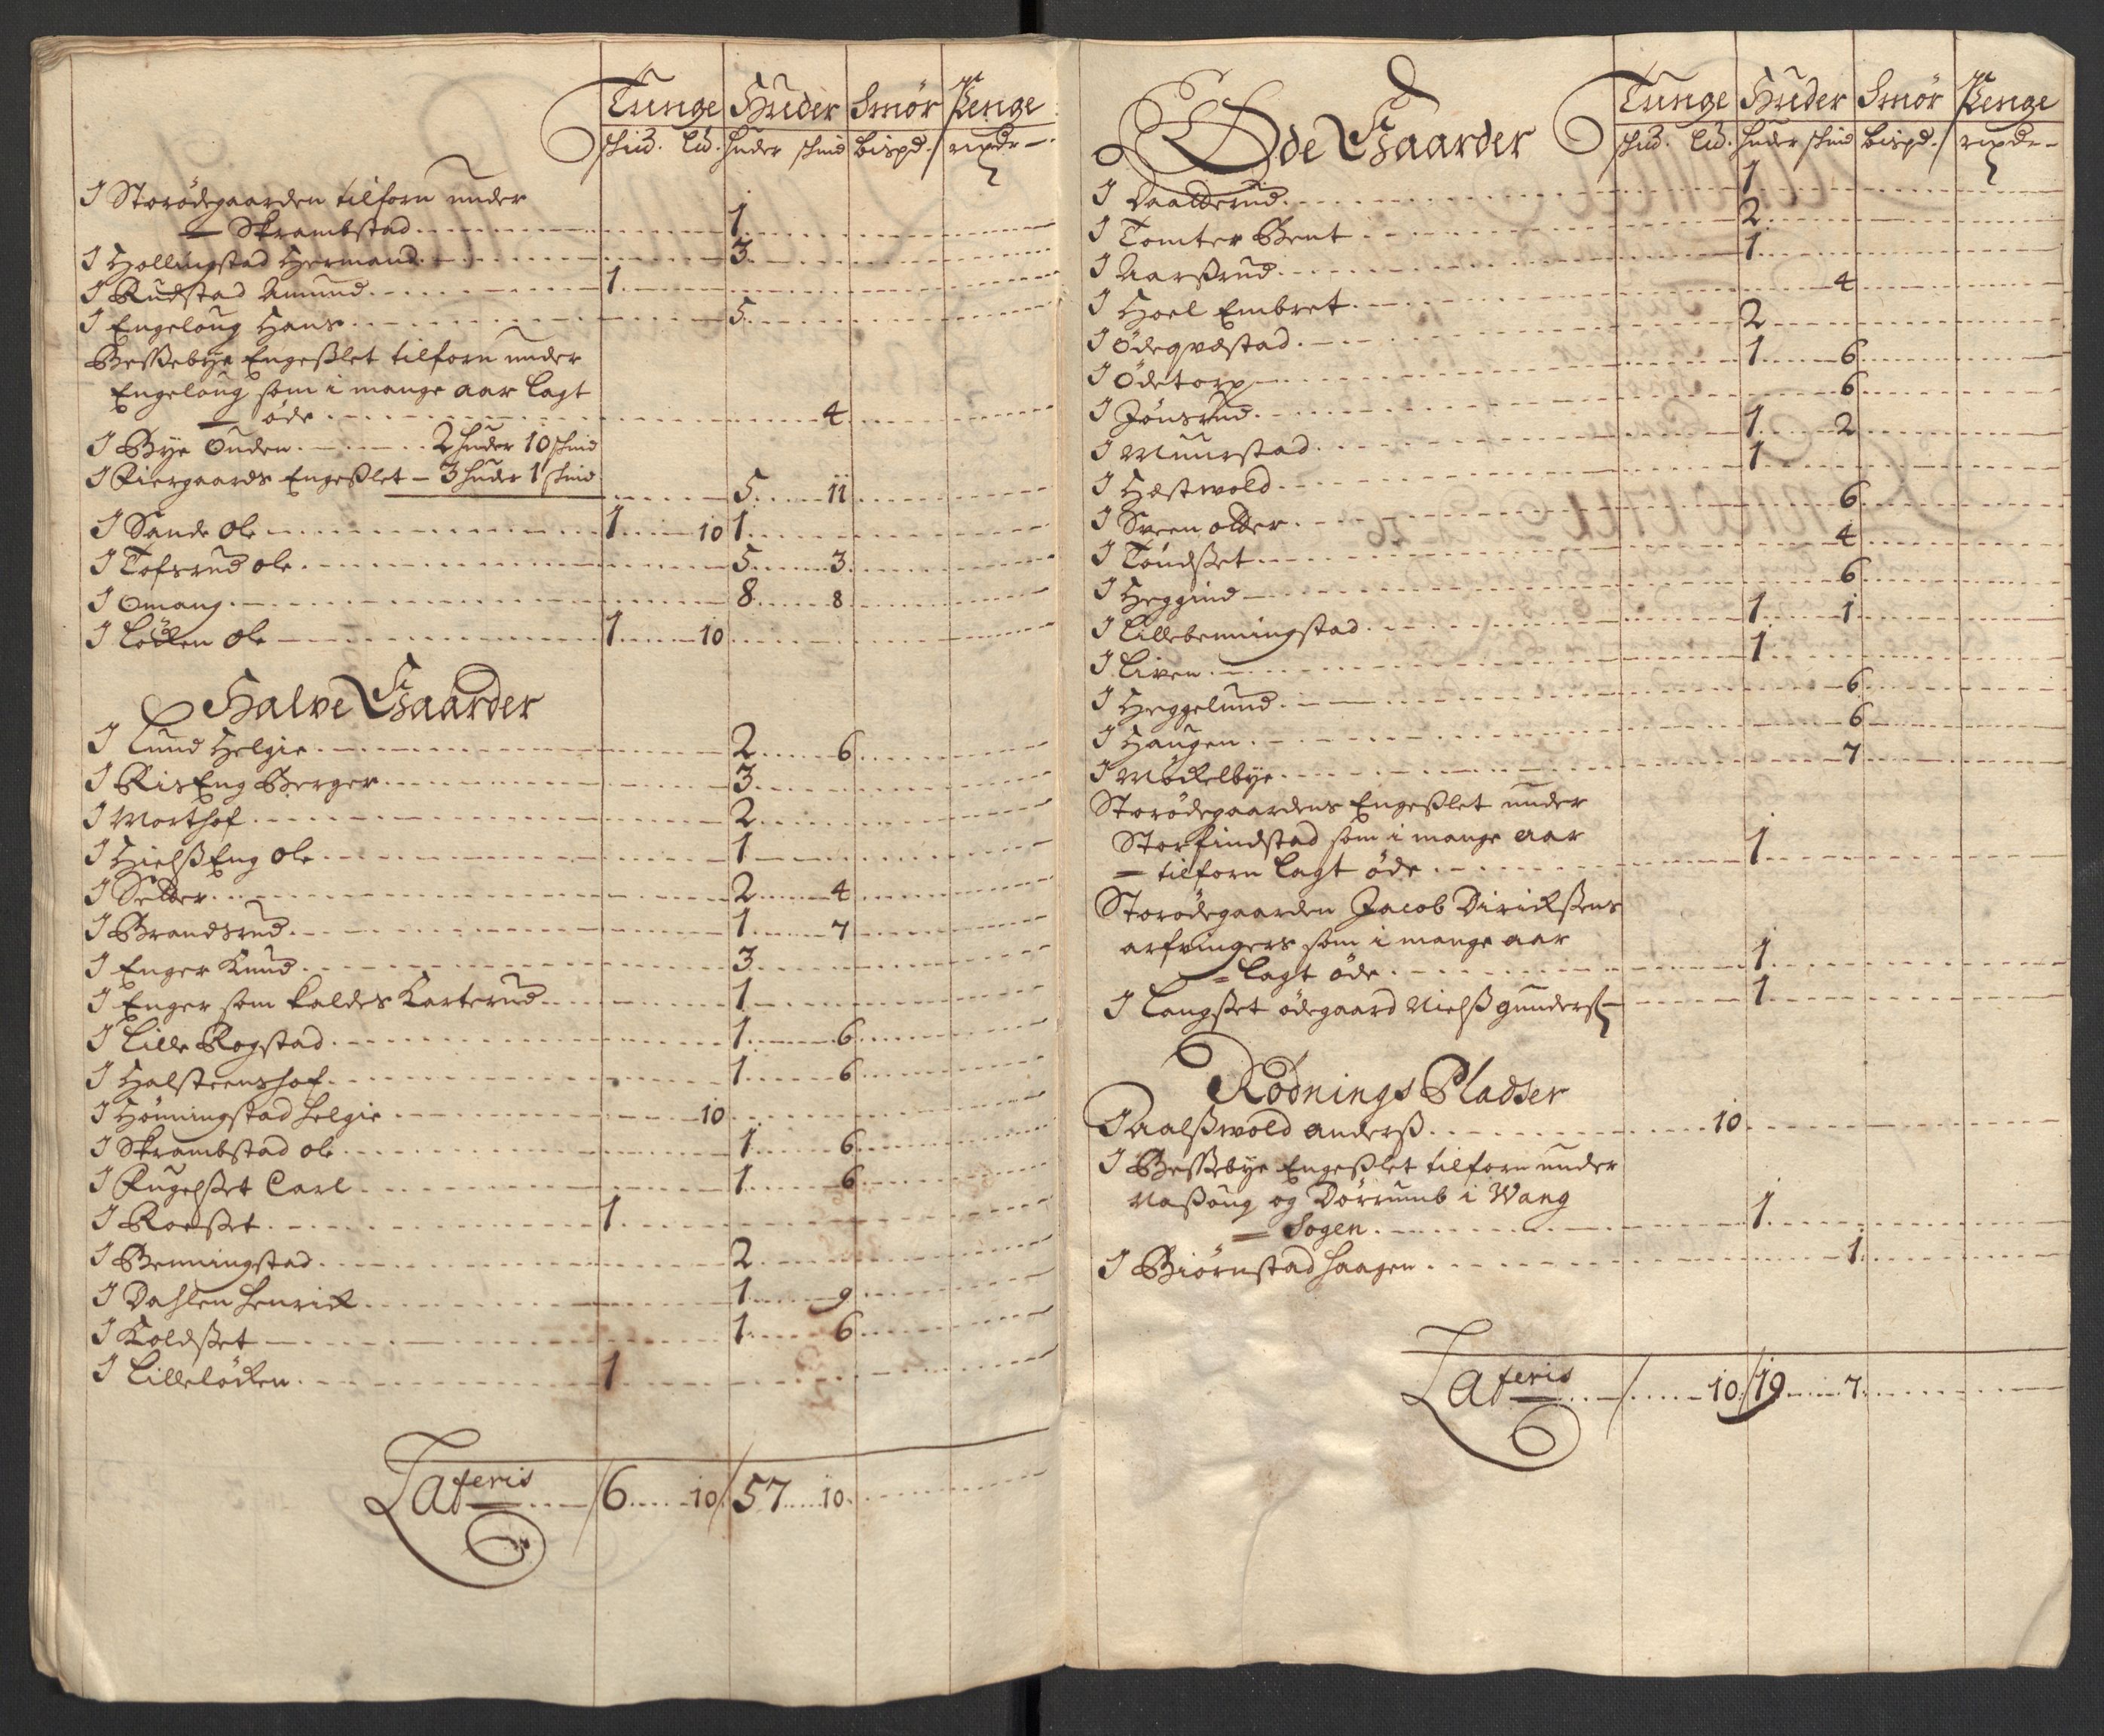 Tunge Huder Smør Penge
schid. lid. huder schind bispd. rixdr
I Storødegaarden tilforn under
Skrambstad 1
I Hollingstad Hermand 3
I Rudstad Amund 1
I Engeloug Hans 5
Bessebye Engeßlet tilforn under
Engeloug som i mange aar lagt
øde 4
I Bye Ouden 2 huder 10 schind
I Kiergaards Engeßlet 3 huder 1 schind
5 11
I Sande Ole 1 10 1
I Tofsrud Ole 5 3
I Omang 8 8
I Løcken Ole 1 10
Halve Gaarder
I Lund Helgie 2 6
I RisEng Berger 3
I Morthof 2
I HielßEng Ole 1
I Setter 2 4
I Brandsrud 1 7
I Enger Knud 3
I Enger som kaldes Karterud 1
I Lille Rogstad 1 6
I Halsteenshof 1 6
I Hønningstad Helgie 10
I Skrambstad Ole 1 6
I Kugelßet Carl 1 6
I Roeßet 1
I Benningstad 2
I Dahlen Henrick 1 9
I Koldßet 1 6
I Lilleløcken 1
Lateris 6 10 57 10
Øde Gaarder
Tunge Huder Smør Penge
schid. lid. huder schind bispd. rixdr
I Daatterud 1
I Tomter Bent 2
I Aarßrud 1
I Hoel Embret 4
I Ødeqvestad 2
I Ødetorp 1 6
I Jønsrud 6
I Muurstad 1 2
I Hæstwold 1
I Sveen otter 6
I Tøndßet 4
I Heggind 6
I Lillebenningstad 1 1
I Liven 1
I Heggelund 6
I Haugen 6
I Møckelbye 7
Storødegaardens Engeßlet under
Storfindstad som i mange aar
tilforn lagt øde 1
Storødegaarden Jacob Dirichßens
arfvingers som i mange aar
lagt øde 1
I Langßet ødegaard Nielß gunderß 1
Rødnings Pladser
I Aalßwold anderß 10
I Bessebye Engeßlet tilforn under
Naßoug og Dørrumb i Wang
Sogen 1
I Biørnstad haagen 1
Lateris 10 19 7